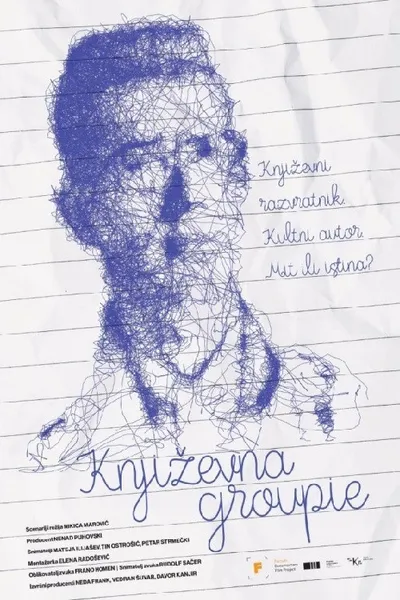 Književni
razvratnik.
Kultni autor.
Mit ili istina?
Književna
groupie
Scenarij i režija NIKICA MAROVIĆ
Producent NENAD PUHOVSKI
Snimatelji MATEJA ILIJAŠEV, TIN OSTROŠIĆ, PETAR STRMEČKI
Montažerka ELENA RADOŠEVIĆ
Oblikovatelj zvuka FRANO HOMEN | Snimatelj zvuka RUDOLF SAČER
Izvršni producenti NEDA FRANK, VEDRAN ŠUVAR, DAVOR KANJIR
F